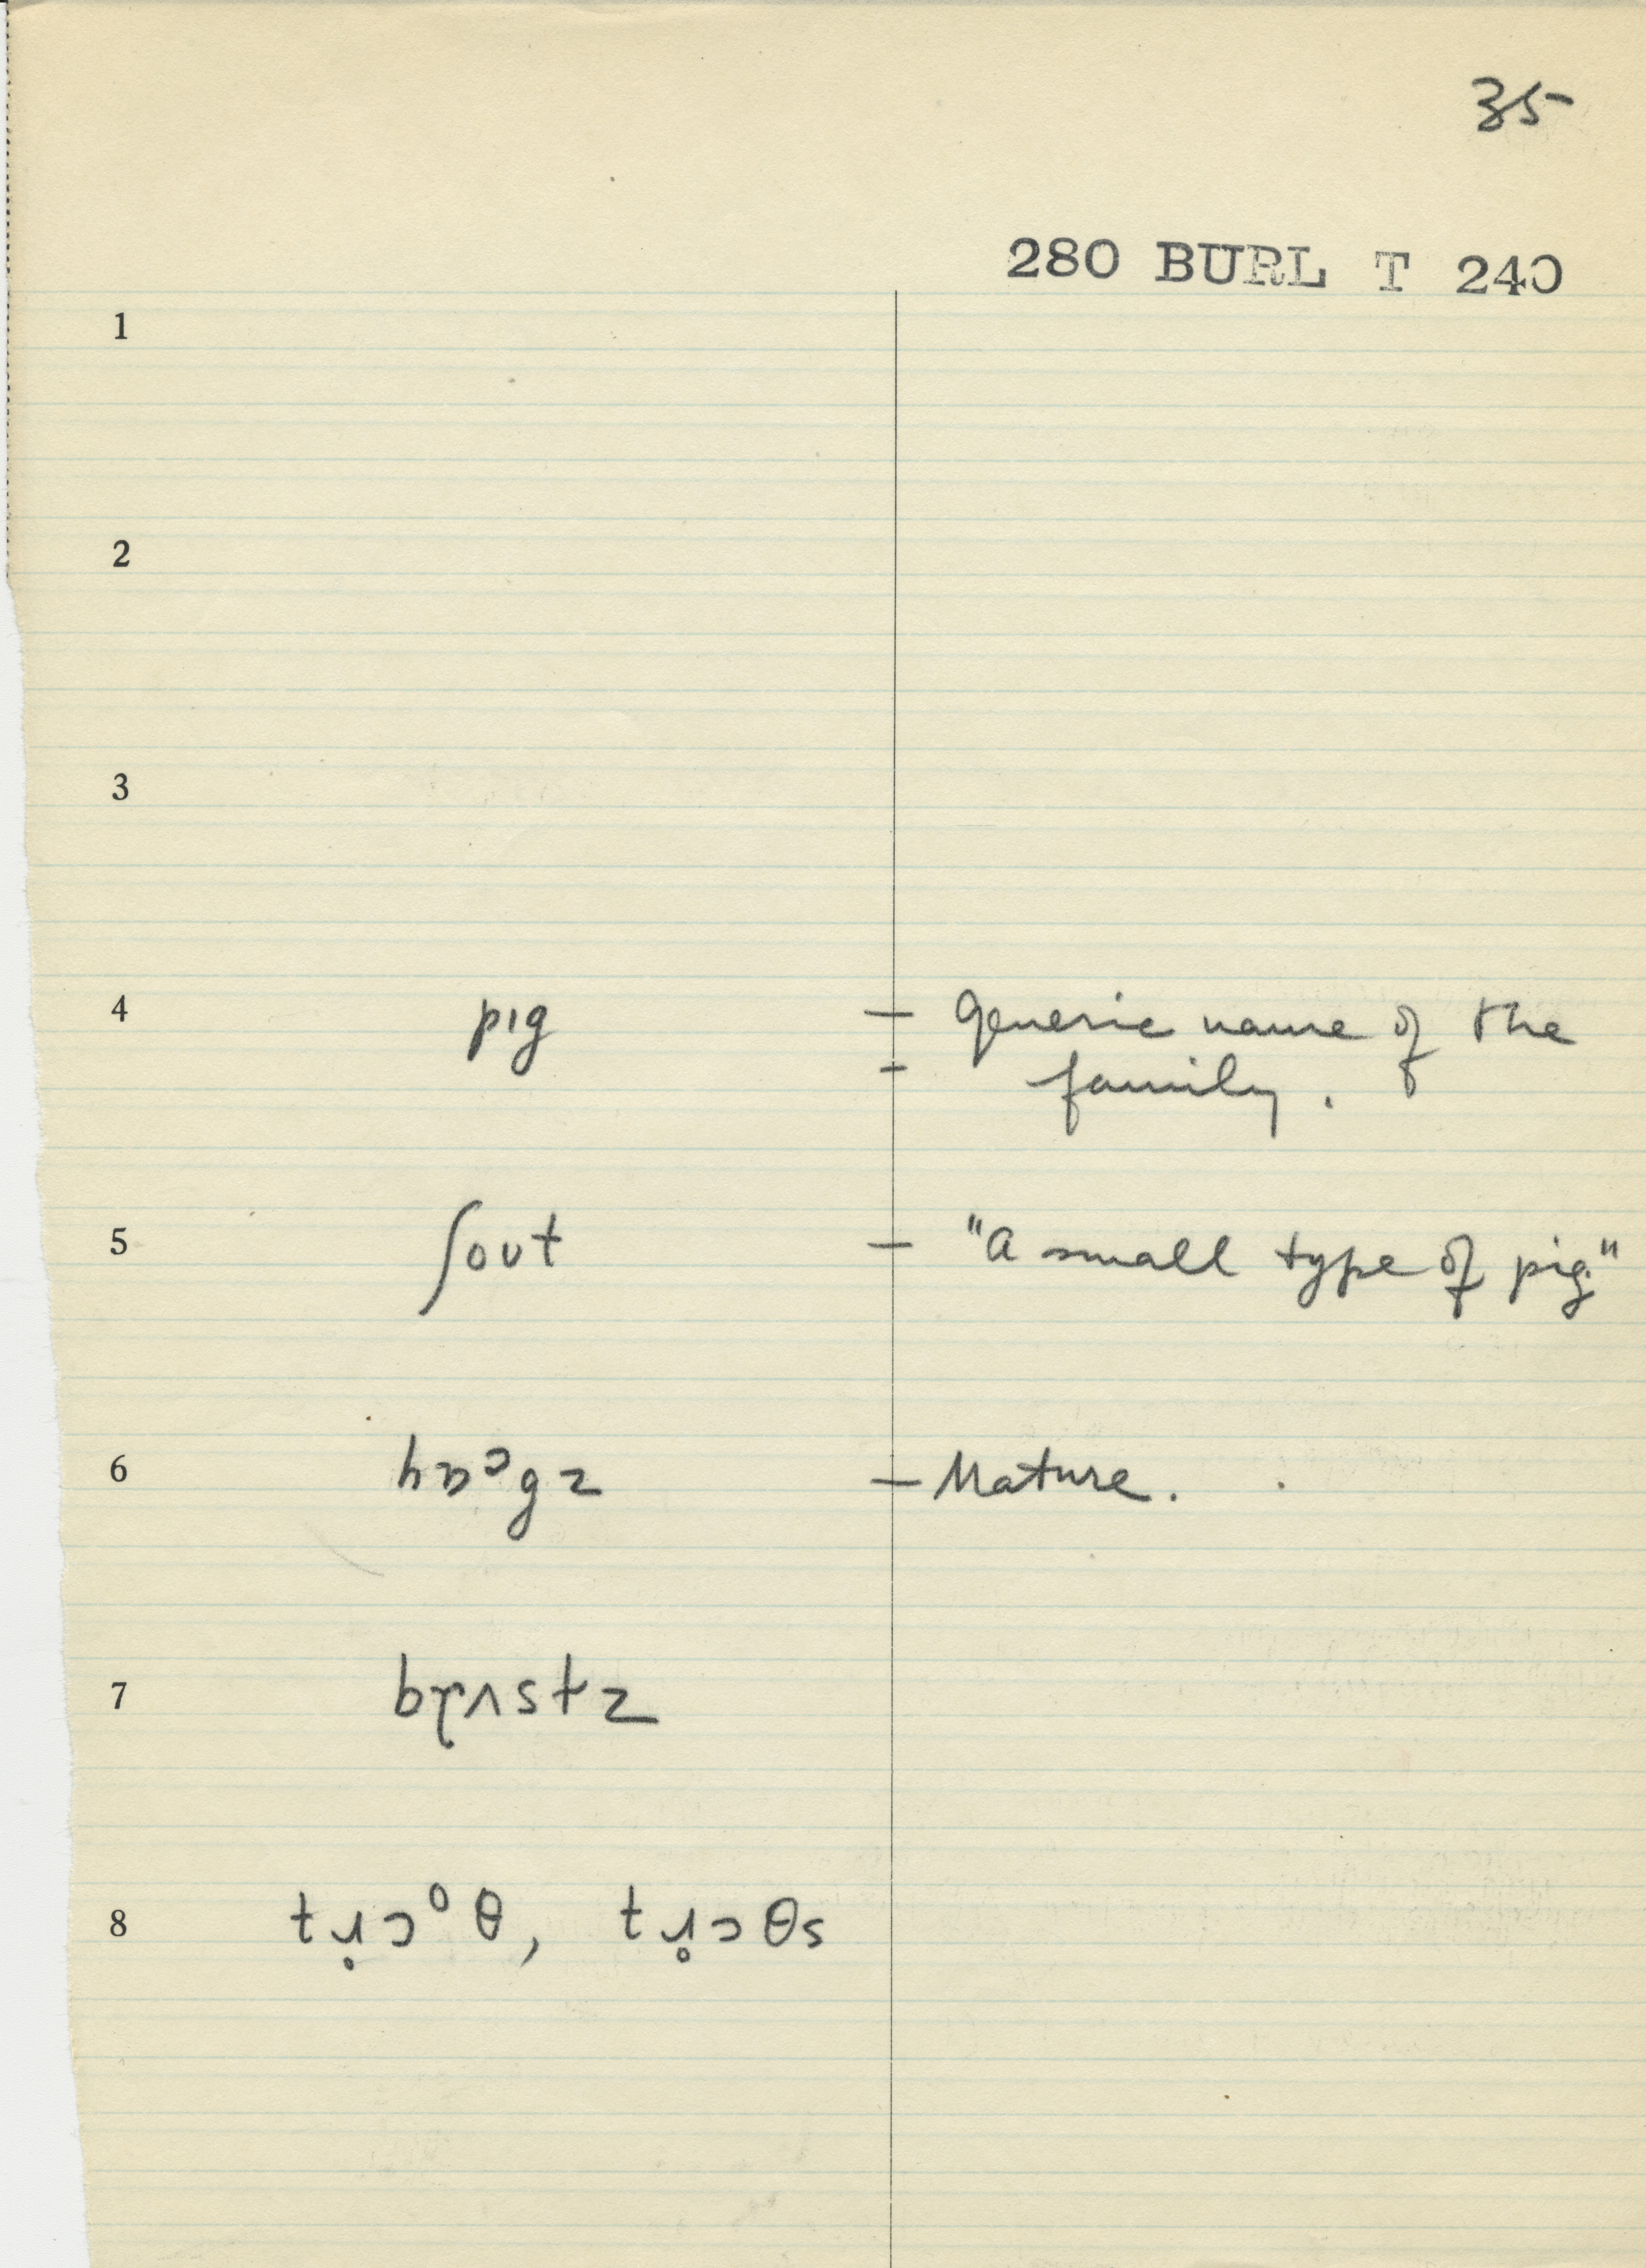 35
280 BURL T 240
1
2
3
4 pıg – generic name of the
– family.
5 ʃoʊt – "a small type of pig"
6 hɒᵓgz – Mature.
7
8 tɹ̥ɔᵒθ, tɹ̥ɔθs